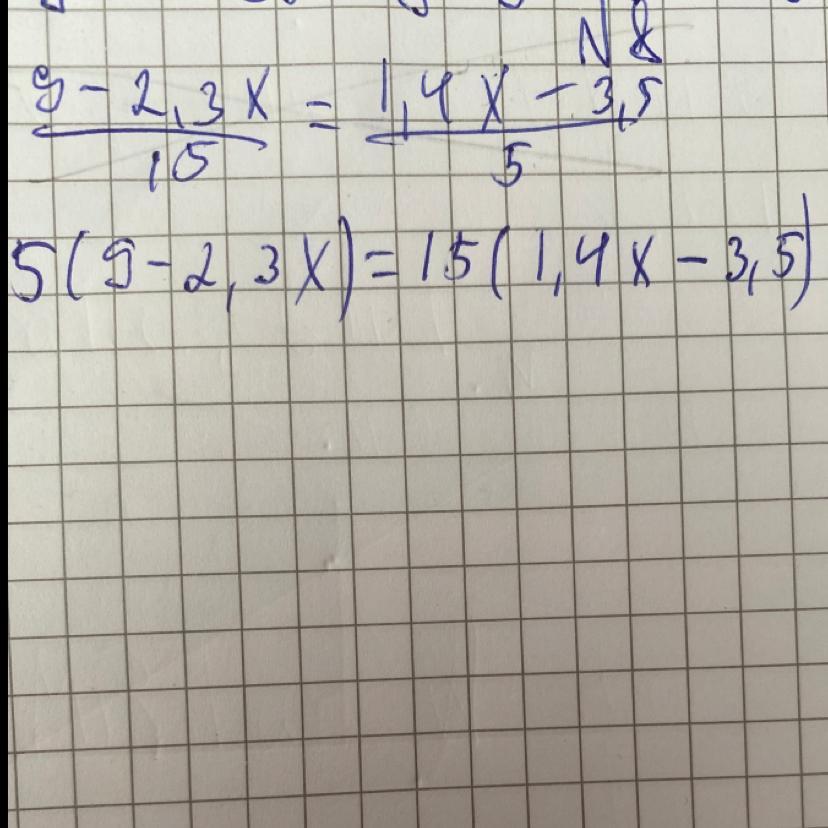 N 8
9 - 2,3x = 1,4x - 3,5
15 5
5(9 - 2,3x) = 15(1,4x - 3,5)